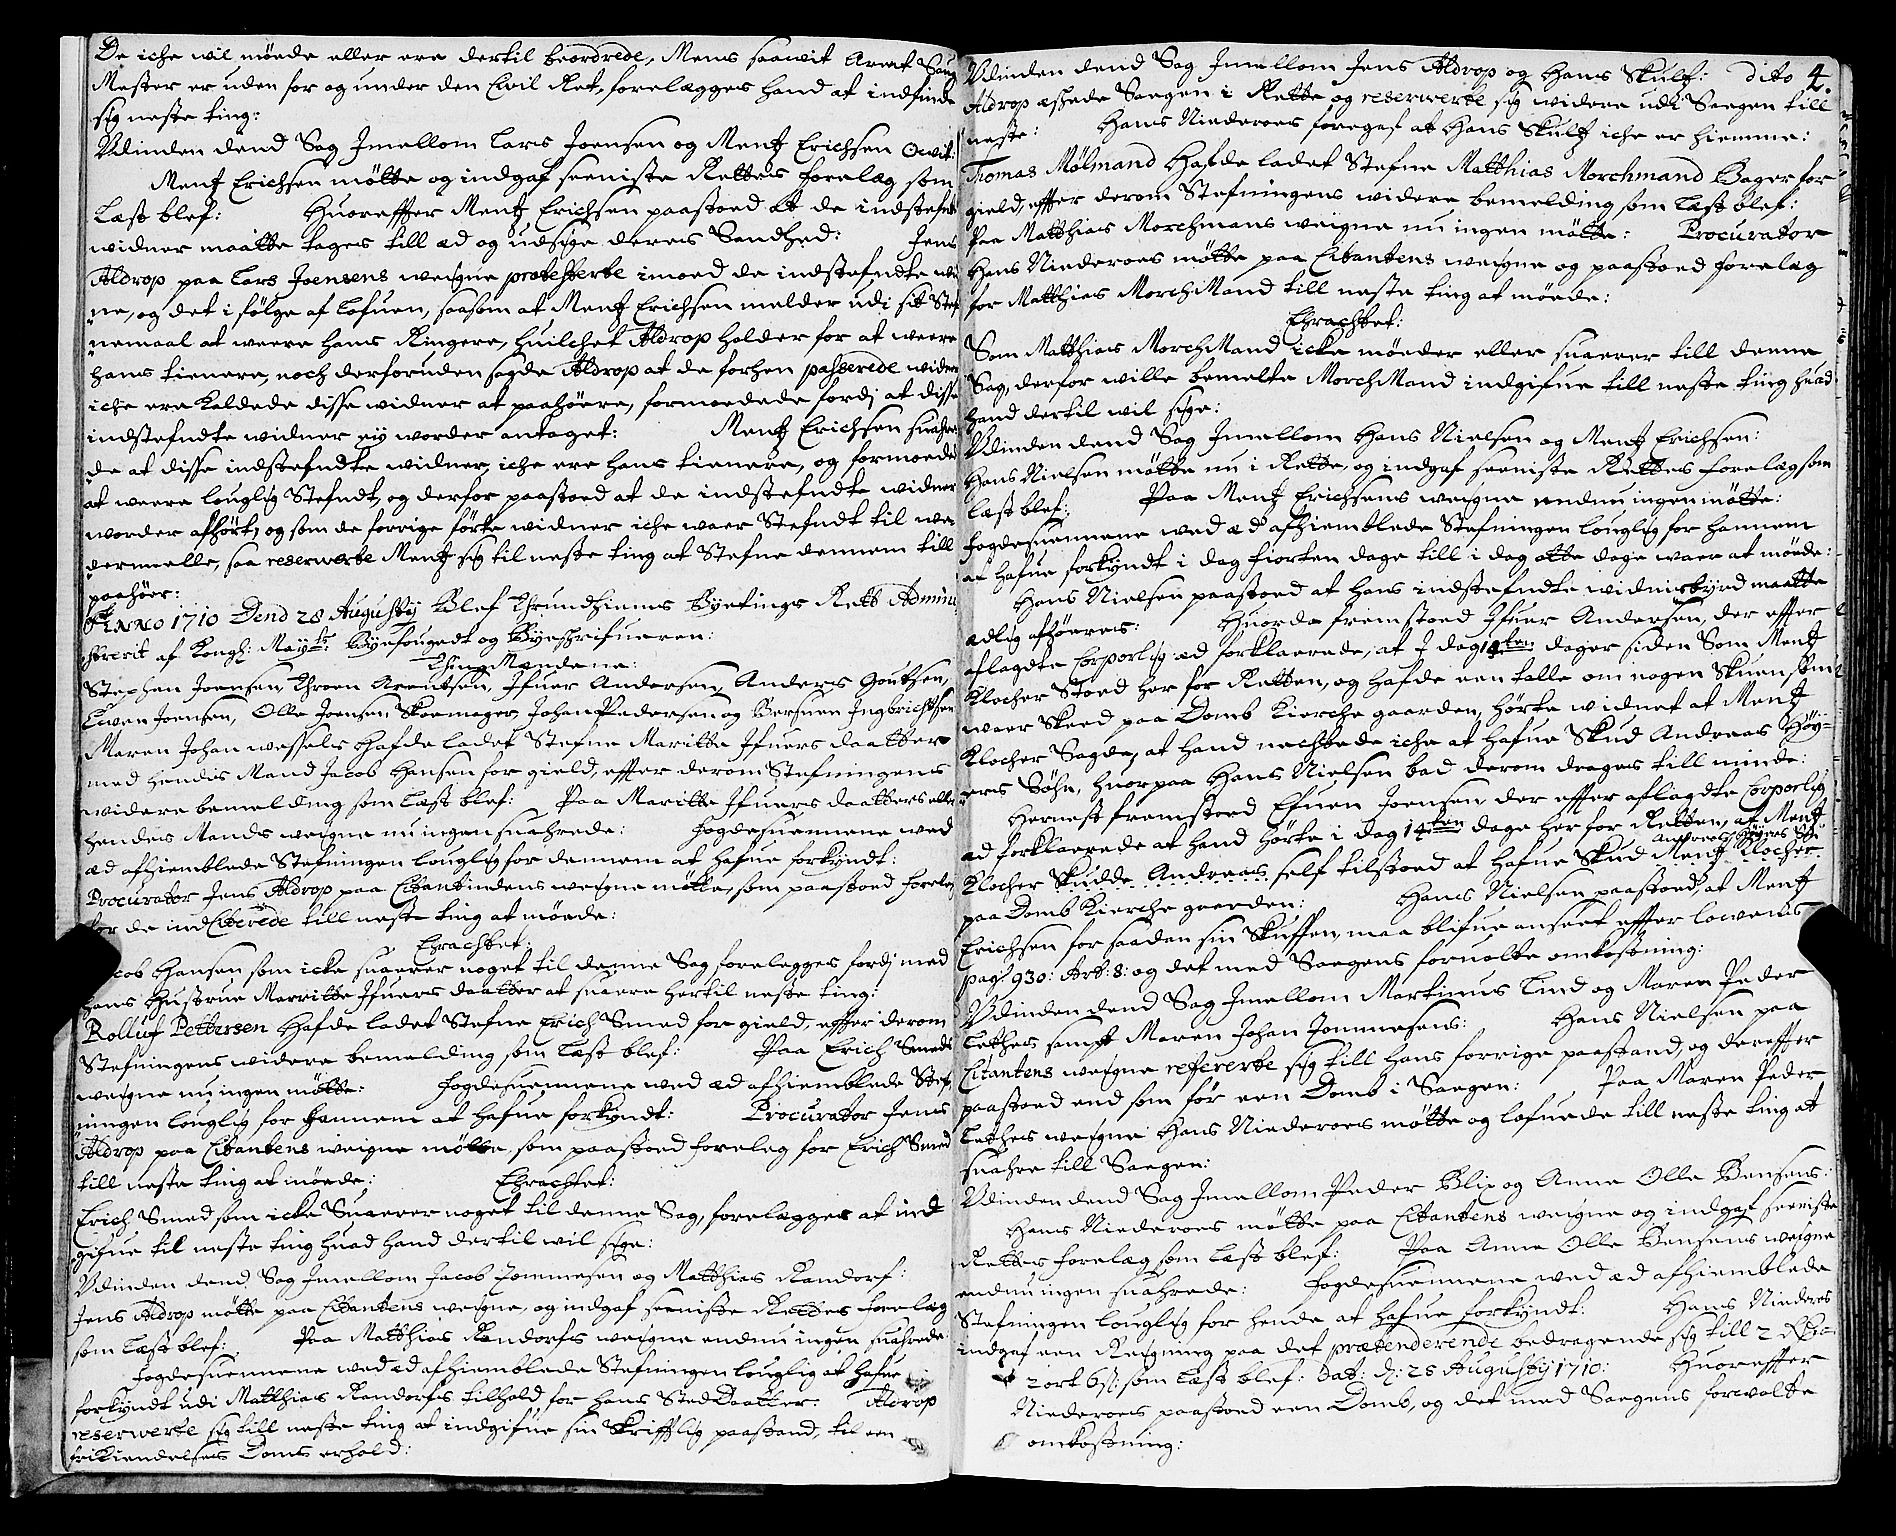 De iche wil møede eller ere dertil beordrede, Mens saawit Arent Sang
Mester er uden for og under den Civil Ret, forelægges hand at indfinde
sig neste ting:
Udinden dend Sag Imellom Lars Joensen og Mentz Erichsen
Mentz Erichsen møtte og indgaf seeniste Rettes forelæg som
Læst blef: Huoreffter Mentz Erichsen paastoed at de indstefnte
widner maatte tages till æd og udsige deres Sandhed: Jens
Aldrop paa Lars Joensens weigne protesterte imoed de indstefndte wid
ne, og det i følge af Lofuen, saasom at Mentz Erichsen melder udi sit Stef
nemaal at weere hans Ringere, huilchet Aldrop holder for at weere
hans tienere, noch derforuden sagde Aldrop at de forhen passerede widner
iche ere kaldede disse widner at paahøere, formoedede fordj at disse
indstefndte widner eÿ worder antaget: Mentz Erichsen suahre
de at disse indstefndte widner iche ere hans tienere, og formoede
at weere louglig Stefndt, og derfor paastoed at de indstefndte widner
worder afhørt, og som de forrige førte widner iche waer Stefndt til we
dermeelle, saa reserwerte Mentz sig til neste ting at Stefne dennem till
paahøer:
ANNO 1710 Dend 28 Augustÿ Blef Thrundhiems Byetings Rett Admini
strerit af Kongl: Maÿts: Byefougedt og Byeschrifueren:
Thing Mendene:
Stephen Joensen, Throen Arentsen, Ifuer Andersen, Anders Goutsen,
Lwen Joensen, Olle Joensen Skoemager, Johan Pedersen og Bersuen Ingbrichtsen
Maren Johan Wessels Hafde ladet Stefne Maritte Ifuers daatter
med hendis Mand Jacob Hansen for gield, effter derom Stefningens
widere bemelding som Læst blef: Paa Maritte Ifuers daatters eller
hendes Mands weigne nu ingen suahrede: fogdesuennene wed
æd afhiemblede Stefningen louglig for dennem at hafue forkyndt:
Procurator Jens Aldrop paa Citantindens weigne møtte, som paastoed foreleg
for de indCiterede till neste ting at møede:
Eragtet:
Jacob Hansen som icke suarer noget til denne Sag forelegges fordj med
hans Hustrue Marritte Ifuers daatter at suare hertil neste ting:
Rolluf Pettersen Hafde ladet Stefne Erich Smed for gield, effter derom
Stefningens widere bemelding som Læst blef: Paa Erich Smeds
weigne nu ingen møtte: fogdesuennene wed æd afhiemblede Stef
ningen louglig for hannem at hafue forkyndt: Procurator Jens
Aldrop paa Citantens weigne møtte, som paastoed foreleg for Erich Smed
till neste ting at møede: Eragtet:
Erich Smed som icke Suarer noget til denne Sag, forelægges at ind
gifue til neste ting huad hand dertil wil sige:
Udinden dend Sag Imellom Jacob Jommesen og Matthias Randorf:
Jens Aldrop møtte paa Citantens weigne, og indgaf seeniste Rettes forelæg
som Læst blef: Paa Matthias Randorfs weigne endnu ingen suahrede
fogdesuennene wed æd afhiemblede Stefningen louglig at hafue
forkyndt udi Matthias Randorfs tilhold for hans Sted Daatter. Aldrop
reserwerte sig till neste ting at indgifue sin Skrifftlig paastand, til een
frikiendelses Doms erhold:
Udinden dend Sag Imellom Jens Aldrop og Hans Skultz: dito 4.
Aldrop æskede Saegen i Rette og reserwerte sig widere udi Saegen till
neste: Hans Niederoes foregaf at Hans Skultz iche er hiemme:
Thomas Mølmand Hafde ladet Stefne Matthias Morchmand Bager for
gield, effter derom Stefningens widere bemelding som Læst blef:
Paa Matthias Morchmans weigne nu ingen møtte: Procurator
Hans Niederoes møtte paa Citantens weigne og paastoed forelæg
for Matthias MorchMand till neste ting at møede:
Eragtet:
Som Matthias MorchMand icke møeder eller suarer till denne
Sag, derfor wille bemelte MorchMand indgifue till neste ting huad
hand dertil wil sige:
Udinden dend Sag Imellom Hans Nielsen og Mentz Erichsen:
Hans Nielsen møtte nu i Rette, og indgaf seeniste Rettes forelæg som
Læst blef: Paa Mentz Erichsens weigne endnu ingen møtte:
fogdesuennene wed æd afhiemblede Stefningen louglig for hannem
at hafue forkyndt i dag fiorten dage till i dag otte dage waer at møede:
Hans Nielsen paastoed at hans indstefndte widnisbyrd maatte
ædlig afhøeres: Huorda fremstoed Ifuer Andersen, der effter
aflagdte Corporlig æd forklaerede, at I dag 14ten dager siden Som Mentz
Klocher Stoed her for Retten, og hafde een talle om nogen Skuen som
waer Skeed paa Domb Kierche gaarden, hørte widnet at Mentz
Klocher Sagde, at hand nechtede iche at hafue Skud Andreas Høy-
ers Søhn, huorpaa Hans Nielsen bad derom drages till minde:
Hernest fremstoed Efuen Joensen der effter aflagdte Corporlig
æd forklaerede at hand hørte i dag 14ten dage her for Retten, at Mentz
Andreas Høyers Søn
Klocher Skudde Andreas self tilstoed at hafue Skud Mentz Klocher
paa Domb Kierche gaarden: Hans Nielsen paastoed, at Mentz
Erichsen for saaden sin Skuffen, maa blifue anseet effter lowens
pag: 930: Art: 8: og det med Saegens foruolte omkostning:
Udinden dend Sag Imellom Martinus Lind og Maren Peder
Lethes sampt Maren Johan Jommesens: Hans Nielsen paa
Citantens weigne refererte sig till hans forrige paastand, og dereffter
paastoed end som før een Domb i Saegen: Paa Maren Peder
Lethes weigne Hans Niederoes møtte og lofuede till neste ting at
suahre till Saegen:
Udinden dend Sag Imellom Peder Blix og Anne Olle Bensens:
Hans Niederoes møtte paa Citantens weigne og indgaf seeniste
Rettes forelæg som Læst blef: Paa Anne Olle Bensens weigne
endnu ingen suahrede: fogdesuennene wed æd afhiemblede
Stefningen louglig for hende at hafue forkyndt: Hans Niederes
indgaf een Reigning paa det prætenderende bedragende sig till 2 Rd:
2 ort 6 s: som Læst blef: dat: d: 28 Augustÿ 1710: Huoreffter
Niederoes paastoed een Domb, og det med Saegens forwolte
omkostning: